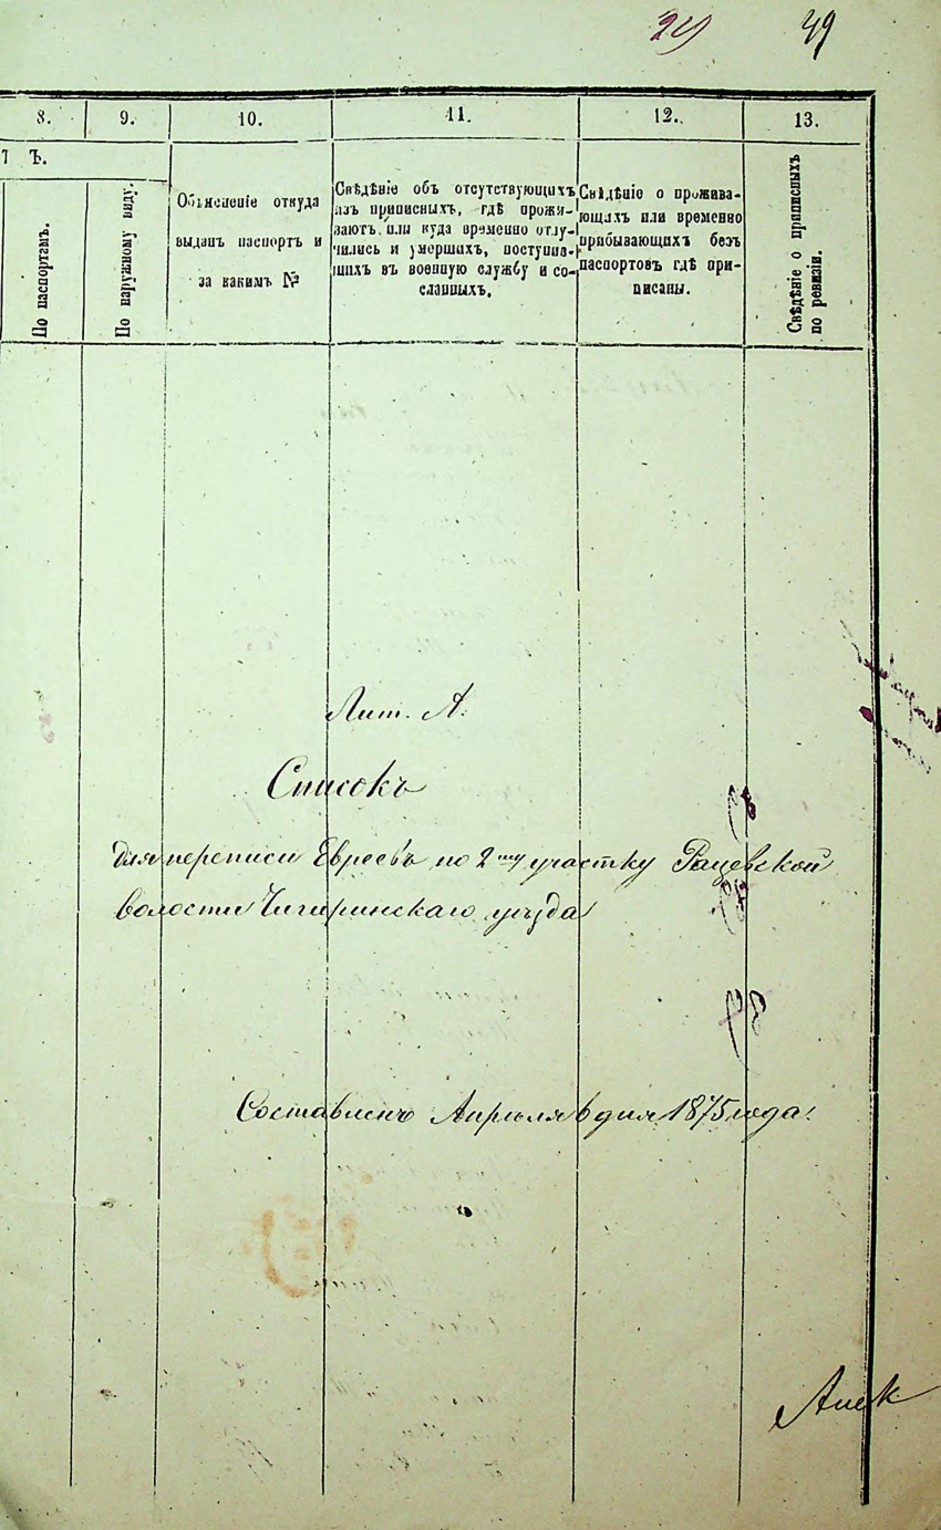 29 49
8. 9. 10. 11. 12. 13.
Ъ.
По паспортамъ.
По наружному виду.
Объясненіе откуда
выданъ паспортъ и
за какимъ №
Свѣдѣніе объ отсутствующихъ
изъ приписныхъ, гдѣ прожи-
ваютъ, или куда временно отлу-
чились и умершихъ, поступив-
шихъ въ военную службу и со-
сланныхъ.
Свѣдѣніе о прожива-
ющихъ или временно
прибывающихъ безъ
паспортовъ гдѣ при-
писаны.
Свѣдѣніе о приписныхъ
по ревизіи.
Лит. А.
Списокъ
для переписи Евреевъ по 2му участку Рацевской
волости Чигиринскаго уѣзда
Составленъ Апрѣля 6 дня 1875 года.